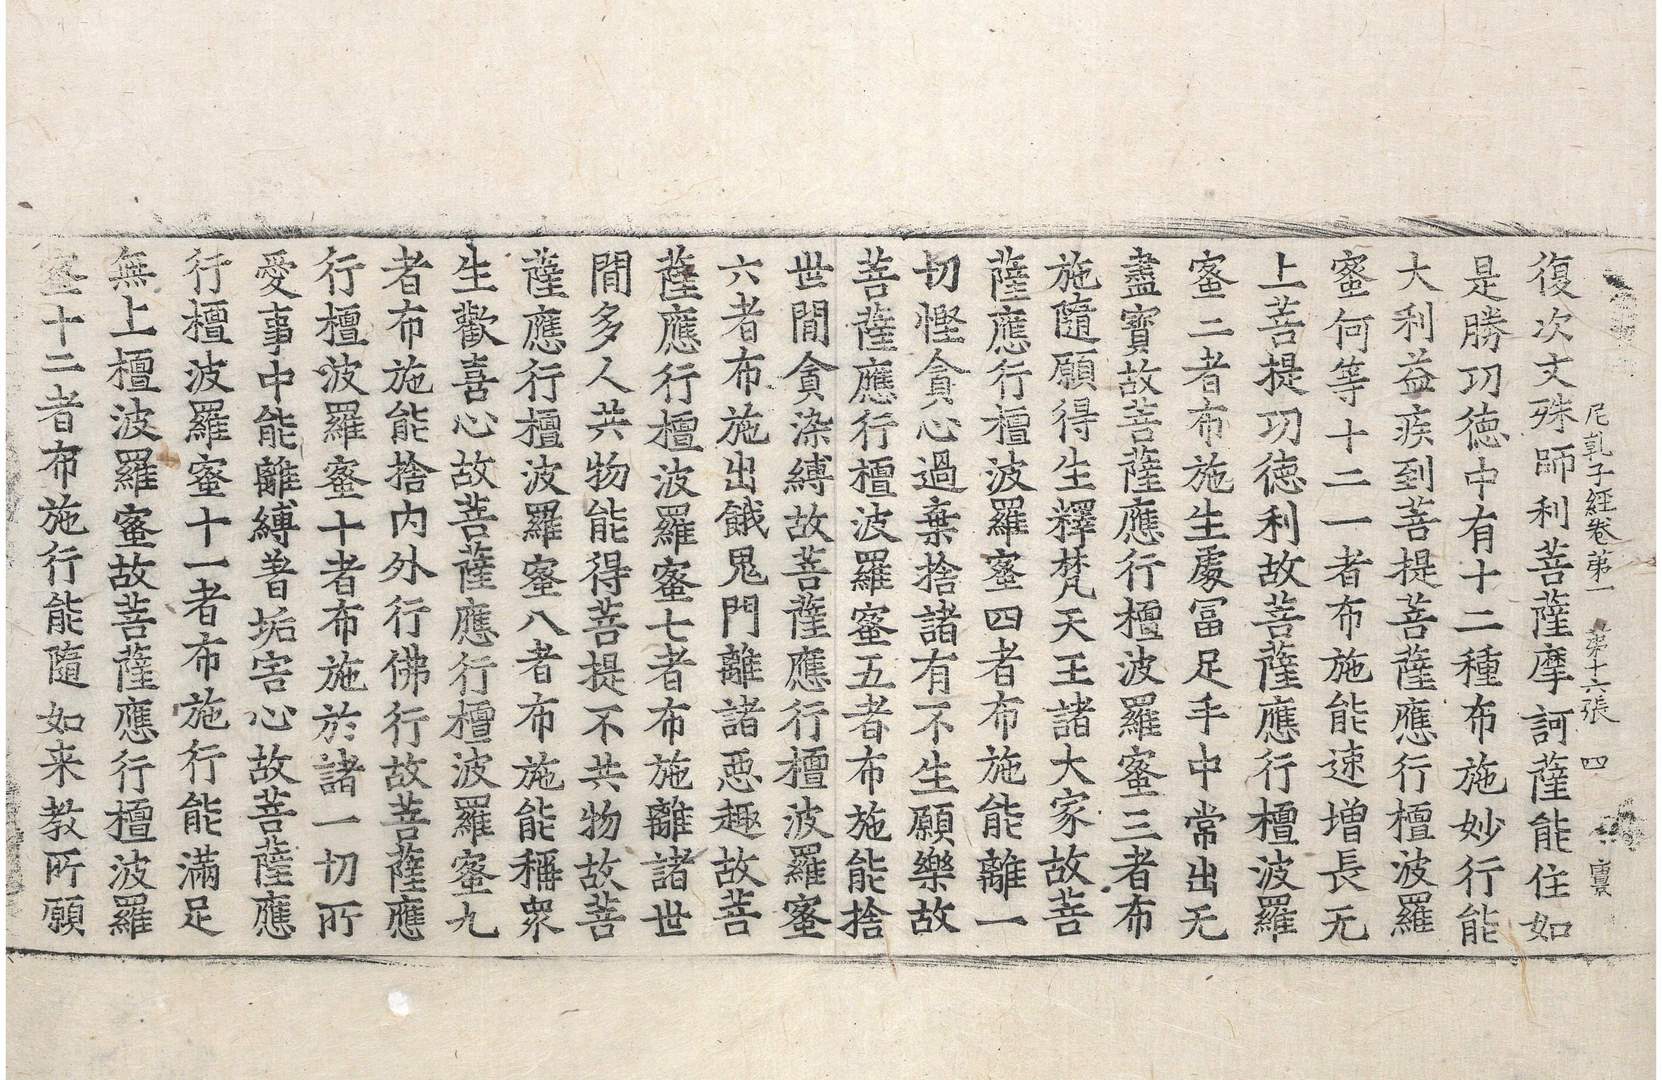 尼乾子經卷第一　第十六張　四
復次文殊師利菩薩摩訶薩能住如
是勝功德中有十二種布施妙行能
大利益疾到菩提菩薩應行檀波羅
蜜何等十二一者布施能速增長无
上菩提功德利故菩薩應行檀波羅
蜜二者布施生處冨足手中常出无
盡寶故菩薩應行檀波羅蜜三者布
施隨願得生釋梵天王諸大家故菩
薩應行檀波羅蜜四者布施能離一
切慳貪心過棄捨諸有不生願樂故
菩薩應行檀波羅蜜五者布施能捨
世間貪染縛故菩薩應行檀波羅蜜
六者布施出餓鬼門離諸惡趣故菩
薩應行檀波羅蜜七者布施離諸世
間多人共物能得菩提不共物故菩
薩應行檀波羅蜜八者布施能稱衆
生歡喜心故菩薩應行檀波羅蜜九
者布施能捨内外行佛行故菩薩應
行檀波羅蜜十者布施於諸一切所
愛事中能離縛著垢害心故菩薩應
行檀波羅蜜十一者布施行能滿足
無上檀波羅蜜故菩薩應行檀波羅
蜜十二者布施行能隨如来教所願